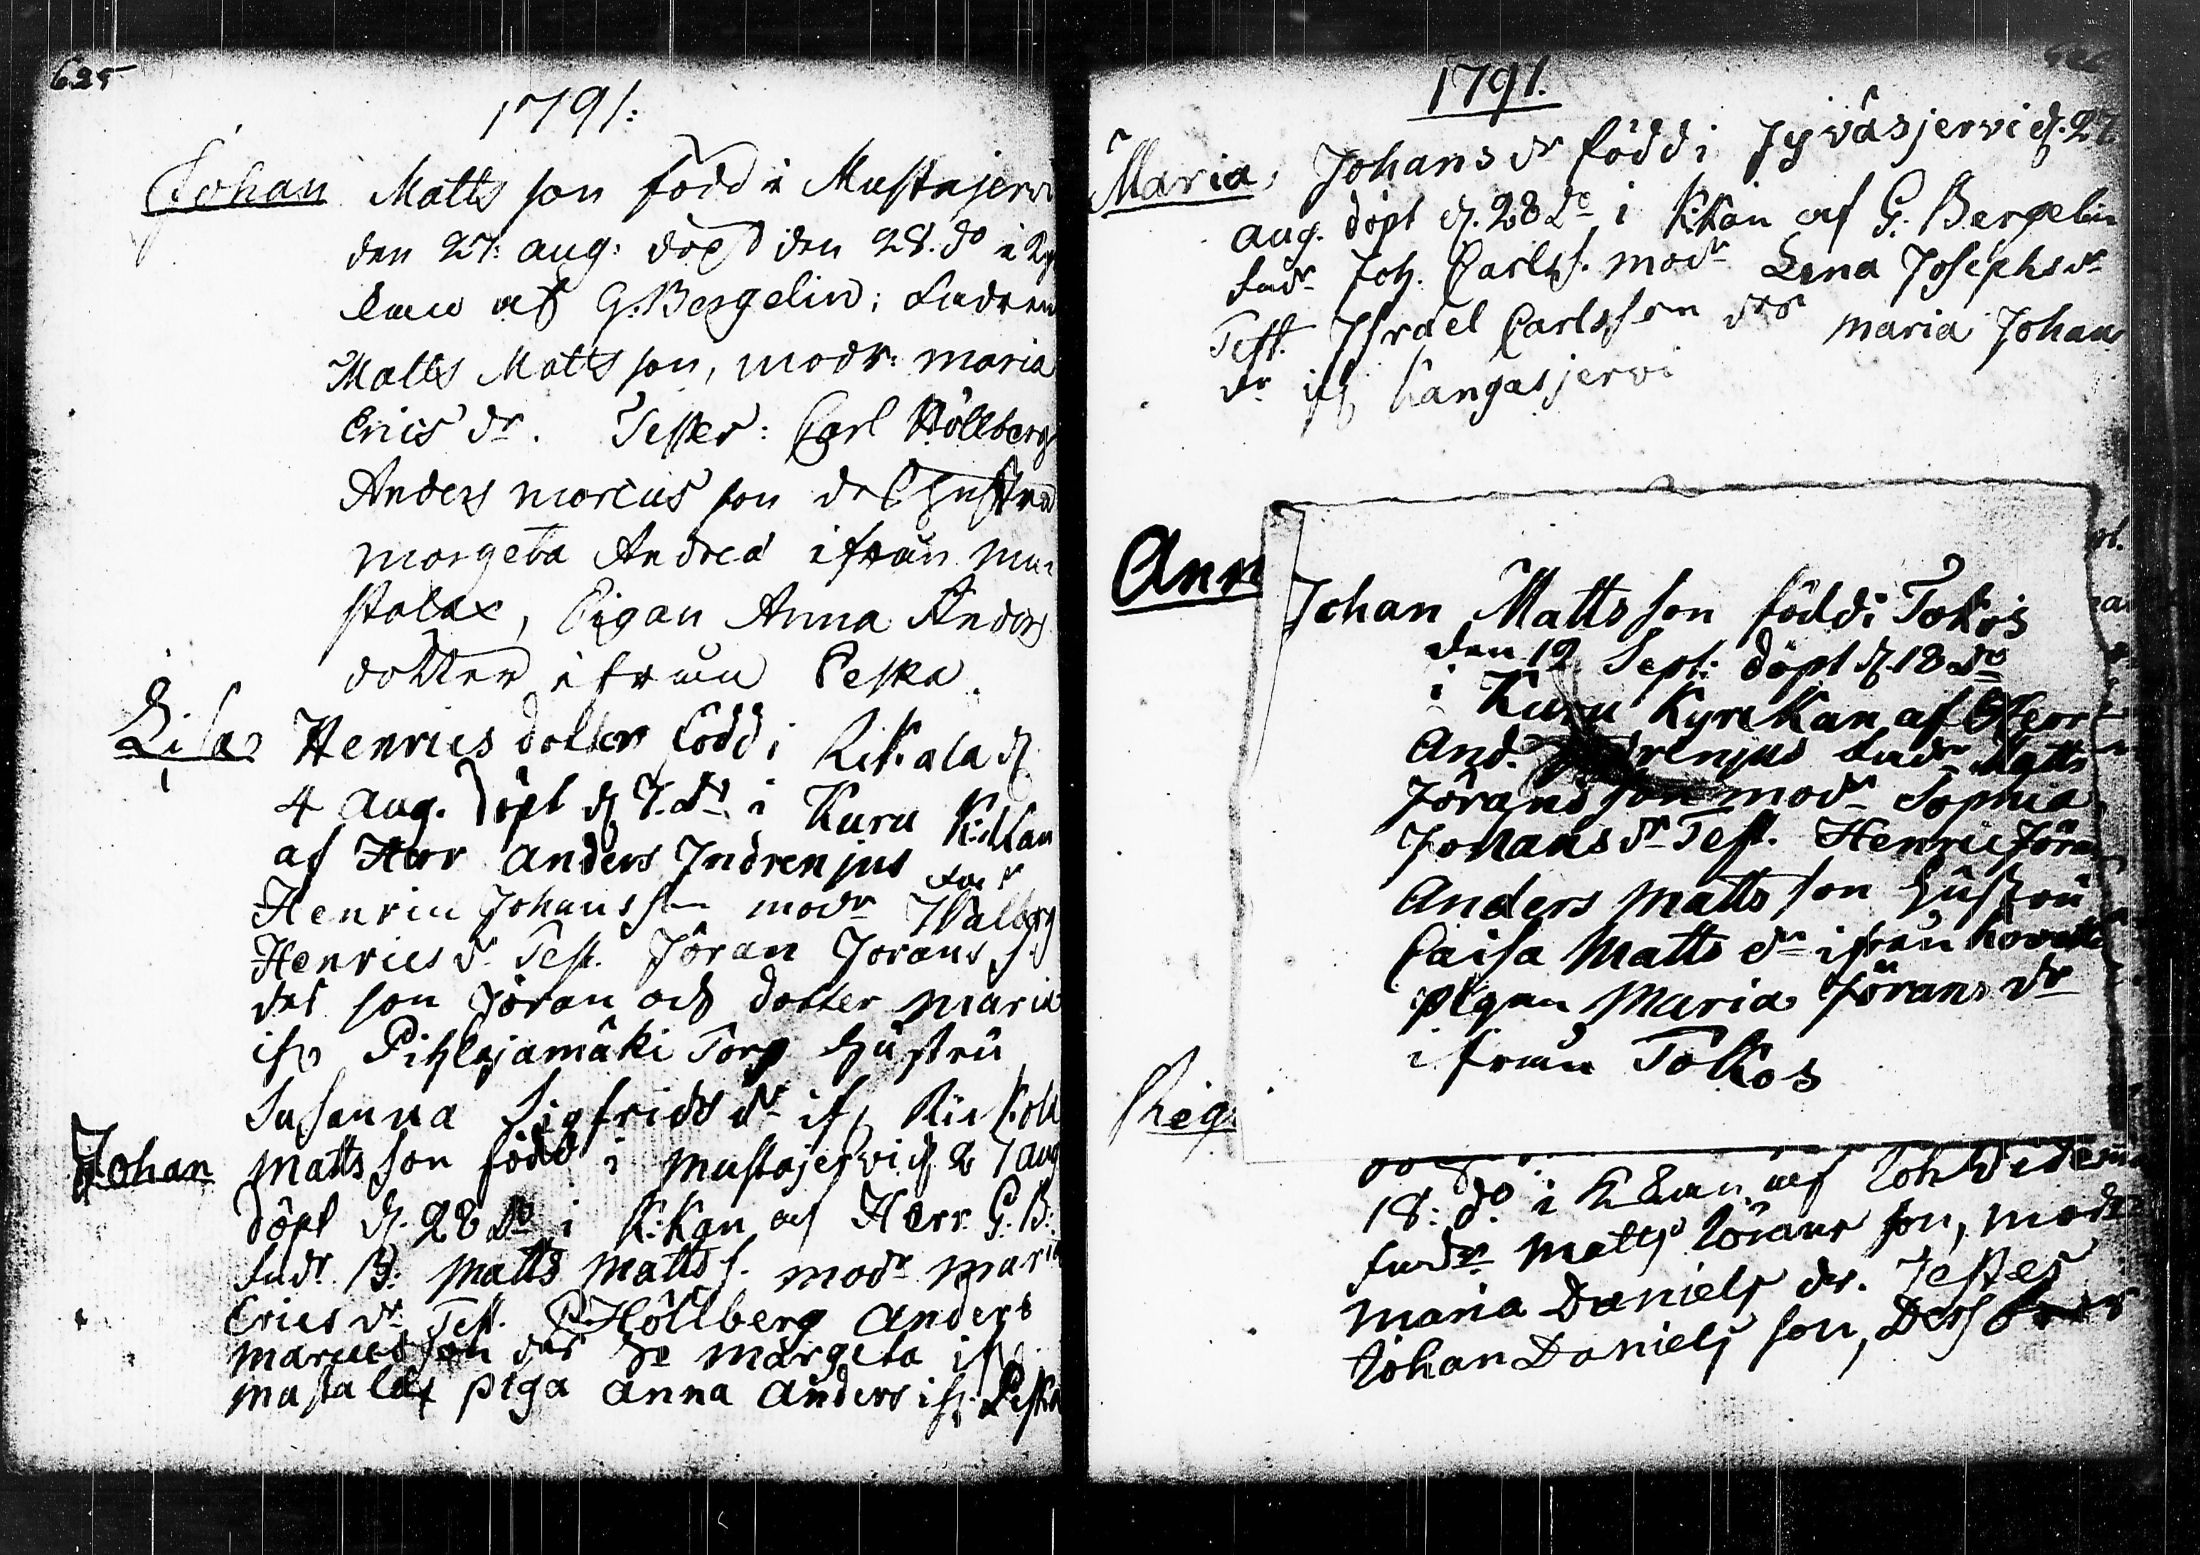 625
1791:
Johan Matts son född i Mustajervi
den 27: aug: döpt den 28. do i Ky
kan af G. Bergelin; Fadren
Matts Matts son, modr: maria
Erics dr. Tester: Carl Höllberg
Anders marcus son des hustru
margeta Andrea ifrån mu
stalax, Pigan Anna Anders
dotter ifrån Peska.
Lisa Henrics dotter född i Rikala d
4 aug. döpt d 7. do i Kuru K:Kan
af Herr Anders Indrenius fad
Henric Johansson modr Walborg
Henrics dr. Test. Jöran Jorans s.
des son Jöran och dotter maria
ifr Pihlajamäki Torp hustru
Susanna Sigfrids dr ifr
Johan Matts son född i mustajervi d. 27 aug
döpt d. 28 do i K:Kan af Herr G. B:
fadr B: Matts Matts s. modr maria
Erics dr Test. C Höllberg Anders
marcusson des hu margeta ifr
mustalax piga anna anders ifr. Peska
1791.
Maria, Johans dr född i Jyväsjervi d. 27
aug. döpt d. 28 do i K:Kan af G. Bergelin
fadr Joh. Carlss. modr Lena Josephs dr
Test. Israel Carlsson des maria Johans
dr ifr Kangasjervi
Ann
Johan Matts son född i Tokos
den 12 Sept: döpt d. 18 do
i Kuru Kyrckan af Herr
And. drenius fadr Matts
Jörans son modr Sophia
Johans dr Test. Henric Jöra
Anders Matts son hustru
Caisa Matts dr ifrån
pigan Maria Jörans dr
ifrån Tokos
Reg
18: do i K Kan af Joh
fadr Matts Jörans son, modr
maria Daniels dr. Testes
Johan Daniels son, Des